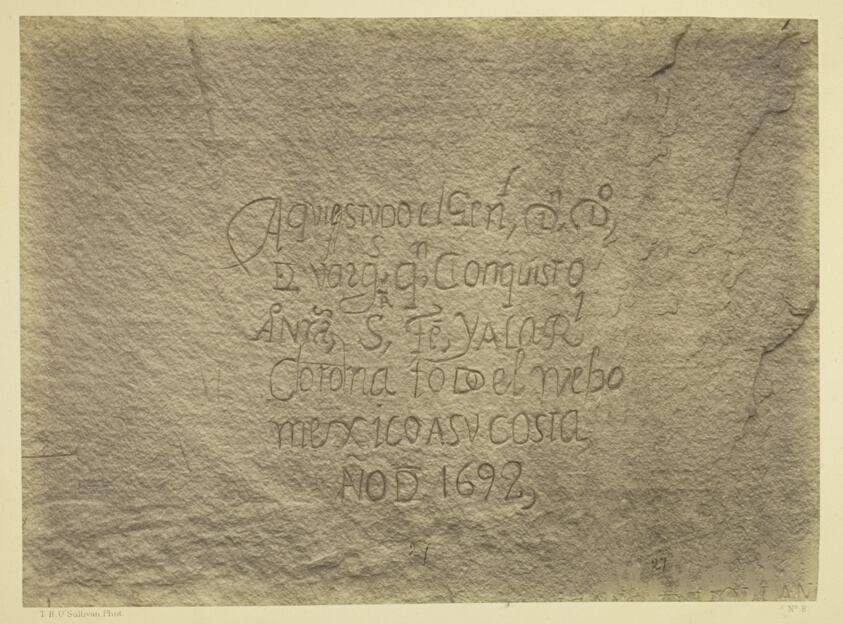 Aqui estuvo el Genˡ, Dⁿ, Dº,
D vargˢ, qⁿ Conquisto
ANrã, S, Fe, YALaRˡ
Corona toDo el nuebo
mexico A SV costa
AÑO D 1692,
27
27
T. H. O'Sullivan, Phot.
Nº 8